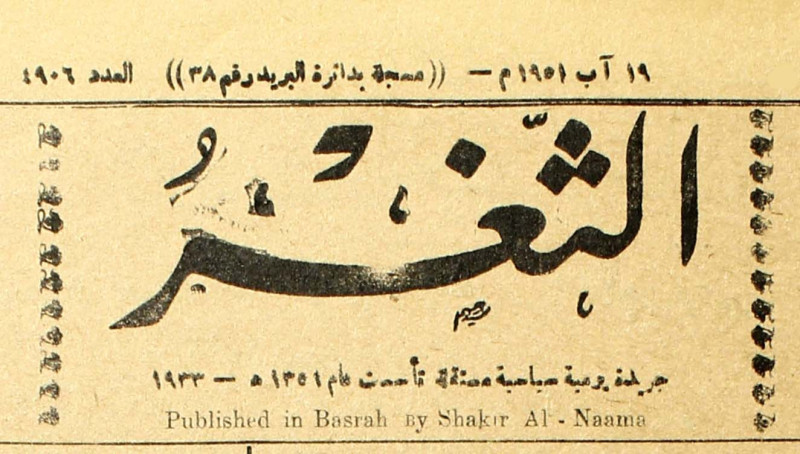 ١٩ آب ١٩٥١ م — ((مسجلة بدائرة البريد رقم ٣٨)) العدد ٤٩٠٦
الثَّغْرُ
جريدة يومية سياسية مستقلة تأسست عام ١٣٥١ ه — ١٩٣٣
Published in Basrah By Shakir Al-Naama